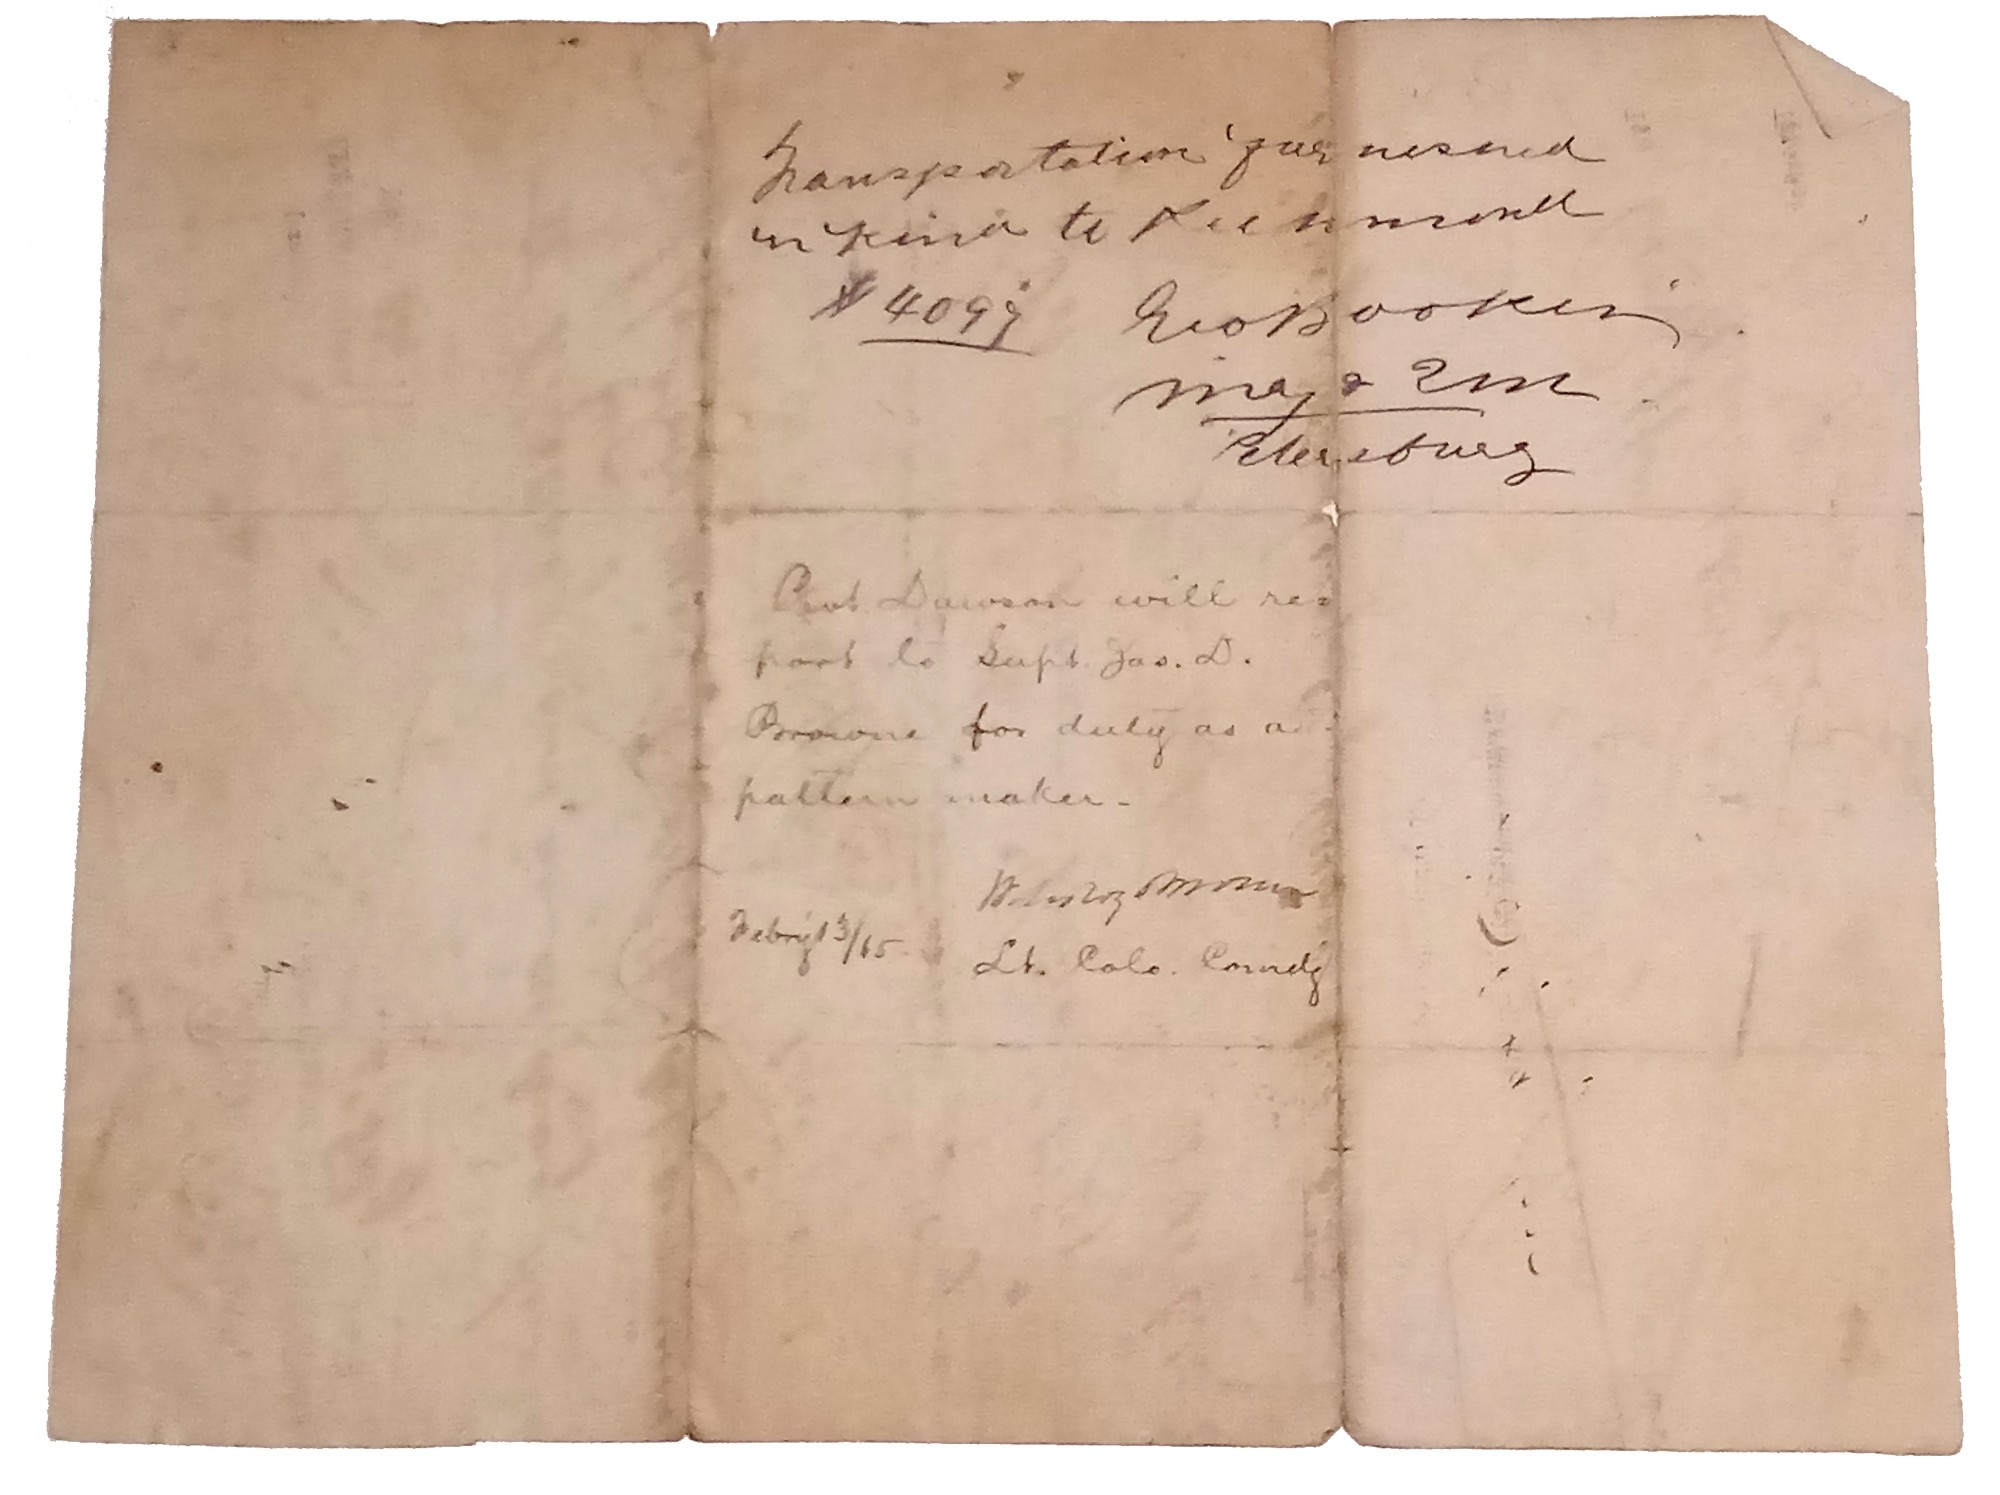 Transportation furnished
in kind to Richmond
# 4099 Geo Booker
Maj & QM
Petersburg
Privt. Dawson will re=
port to Supt. Jas. D.
Browne for duty as a
pattern maker -
Lt. Colo. Comdg
Febry 13/65